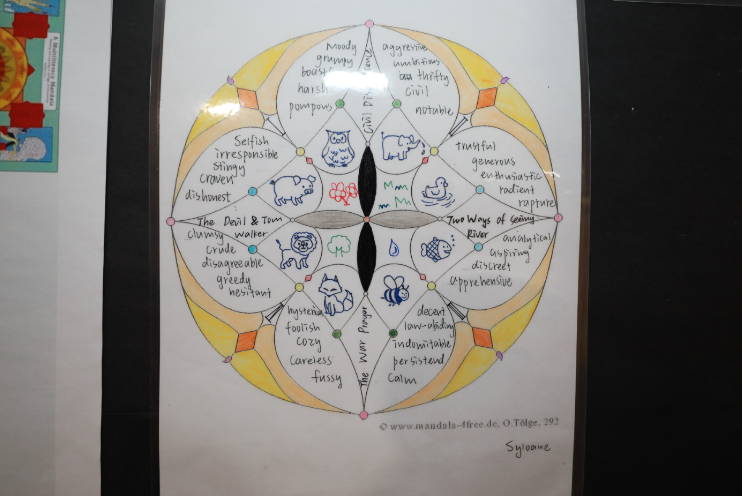 A Multiliteracy Mandala
Moody
grumpy
harsh
pompous
aggressive
ambitious
thrifty
civil
notable
Civil
Selfish
irresponsible
stingy
craven
dishonest
trustful
generous
enthusiastic
radient
rapture
The Devil & Tom
Walker
Two Ways of Seeing
River
clumsy
crude
disagreeable
greedy
hesitant
analytical
aspiring
discreet
apprehensive
hysteric
foolish
cozy
careless
fussy
The War Prayer
decent
law-abiding
indomitable
persistend
calm
© www.mandala-4free.de, O.Tölge, 292